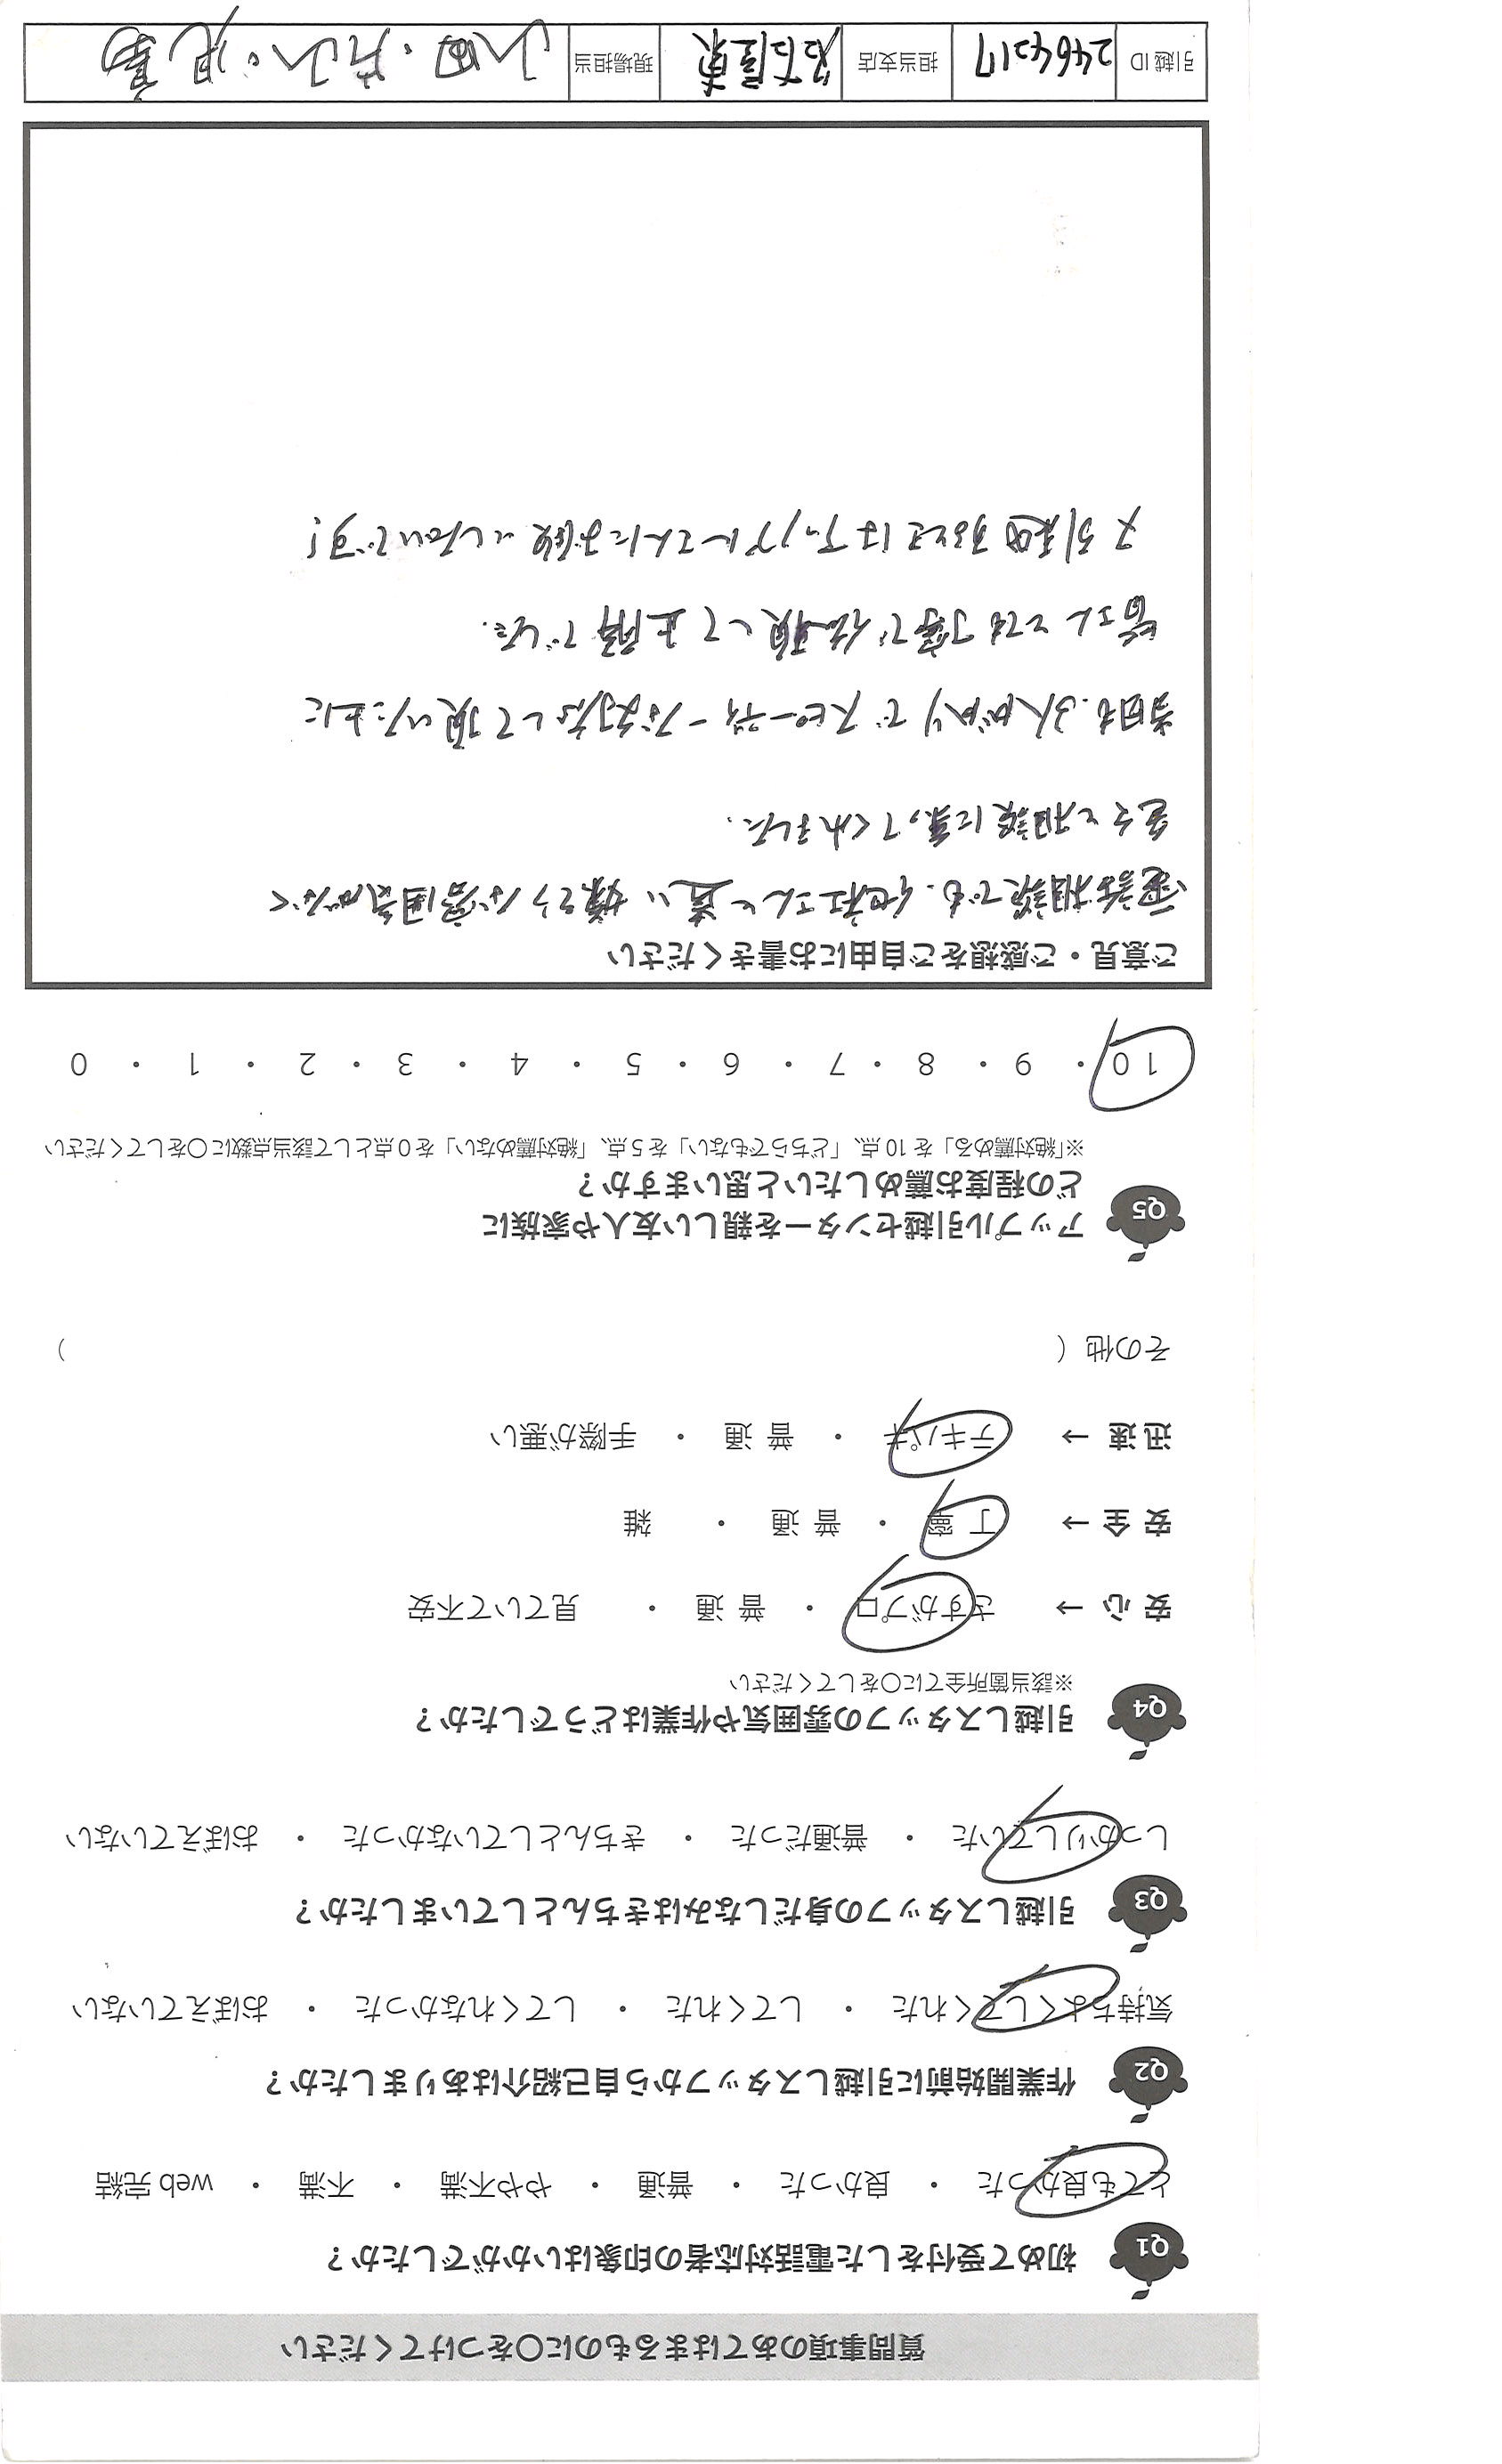 質問事項のあてはまるものに〇をつけてください
Q1 初めて受付をした電話対応者の印象はいかがでしたか？
とても良かった ・ 良かった ・ 普通 ・ やや不満 ・ 不満 ・ web 完結
Q2 作業開始前に引越しスタッフから自己紹介はありましたか？
気持ちよくしてくれた ・ してくれた ・ してくれなかった ・ おぼえていない
Q3 引越しスタッフの身だしなみはきちんとしていましたか？
しっかりしていた ・ 普通だった ・ きちんとしていなかった ・ おぼえていない
Q4 引越しスタッフの雰囲気や作業はどうでしたか？
※該当箇所全てに〇をしてください
安 心 → さすがプロ ・ 普 通 ・ 見ていて不安
安 全 → 丁 寧 ・ 普 通 ・ 雑
迅 速 → テキパキ ・ 普 通 ・ 手際が悪い
その他（ ）
Q5 アップル引越センターを親しい友人や家族に
どの程度お薦めしたいと思いますか？
※「絶対薦める」を 10 点、「どちらでもない」を 5 点、「絶対薦めない」を 0 点として該当点数に〇をしてください
10 ・ 9 ・ 8 ・ 7 ・ 6 ・ 5 ・ 4 ・ 3 ・ 2 ・ 1 ・ 0
ご意見・ご感想をご自由にお書きください
電話相談でも、他社さんと違い嫌そうな雰囲気がなく
色々と相談に乗ってくれました。
当日も、3人がかりでスピーディーな対応して頂いた上に
皆さんとても丁寧で依頼して正解でした。
又引越するときはアップルさんにお願いしたいです！
引越 ID 2464217 担当支店 名古屋東 現場担当 山田・片山・